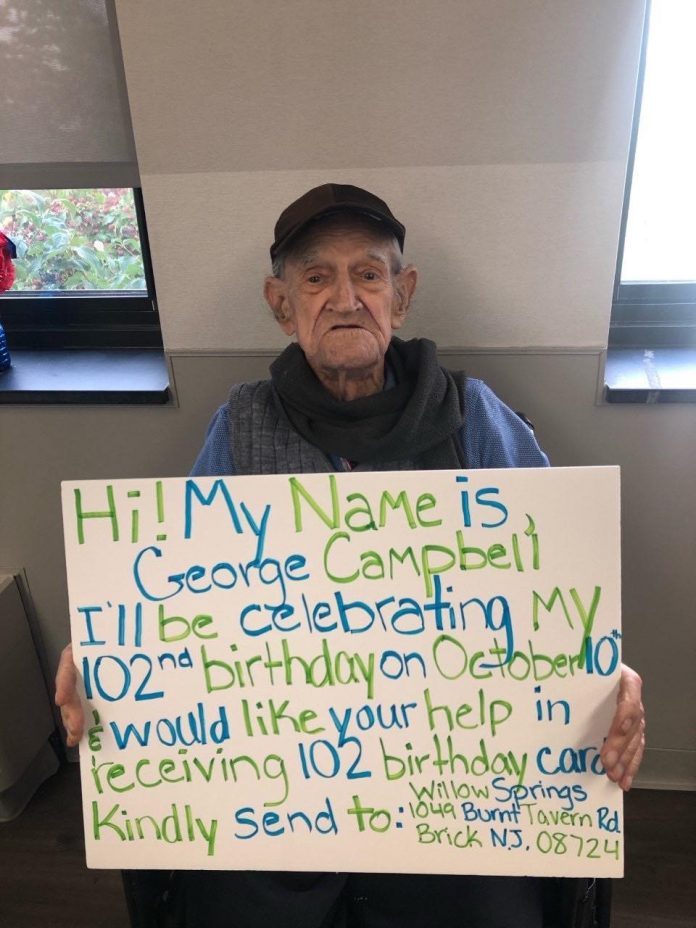 Hi! My Name is,
George Campbell
I'll be celebrating my
102nd birthday on October 10th
& would like your help in
receiving 102 birthday card
Kindly send to: Willow Springs
1049 Burnt Tavern Rd
Brick N.J. 08724